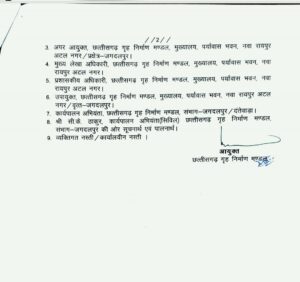 //2//
3. अपर आयुक्त, छत्तीसगढ़ गृह निर्माण मण्डल, मुख्यालय, पर्यावास भवन, नवा रायपुर
अटल नगर/प्रक्षेत्र-जगदलपुर।
4. मुख्य लेखा अधिकारी, छत्तीसगढ़ गृह निर्माण मण्डल, मुख्यालय, पर्यावास भवन, नवा
रायपुर अटल नगर।
5. प्रशासकीय अधिकारी, छत्तीसगढ़ गृह निर्माण मण्डल, मुख्यालय, पर्यावास भवन, नवा
रायपुर अटल नगर।
6. उपायुक्त, छत्तीसगढ़ गृह निर्माण मण्डल, मुख्यालय, पर्यावास भवन, नवा रायपुर अटल
नगर/वृत्त-जगदलपुर।
7. कार्यपालन अभियंता, छत्तीसगढ़ गृह निर्माण मण्डल, संभाग-जगदलपुर/दंतेवाड़ा।
8. श्री सी.के. ठाकुर, कार्यपालन अभियंता(सिविल) छत्तीसगढ़ गृह निर्माण मण्डल,
संभाग-जगदलपुर की ओर सूचनार्थ एवं पालनार्थ।
9. व्यक्तिगत नस्ती/कार्यालयीन नस्ती।
आयुक्त
छत्तीसगढ़ गृह निर्माण मण्डल